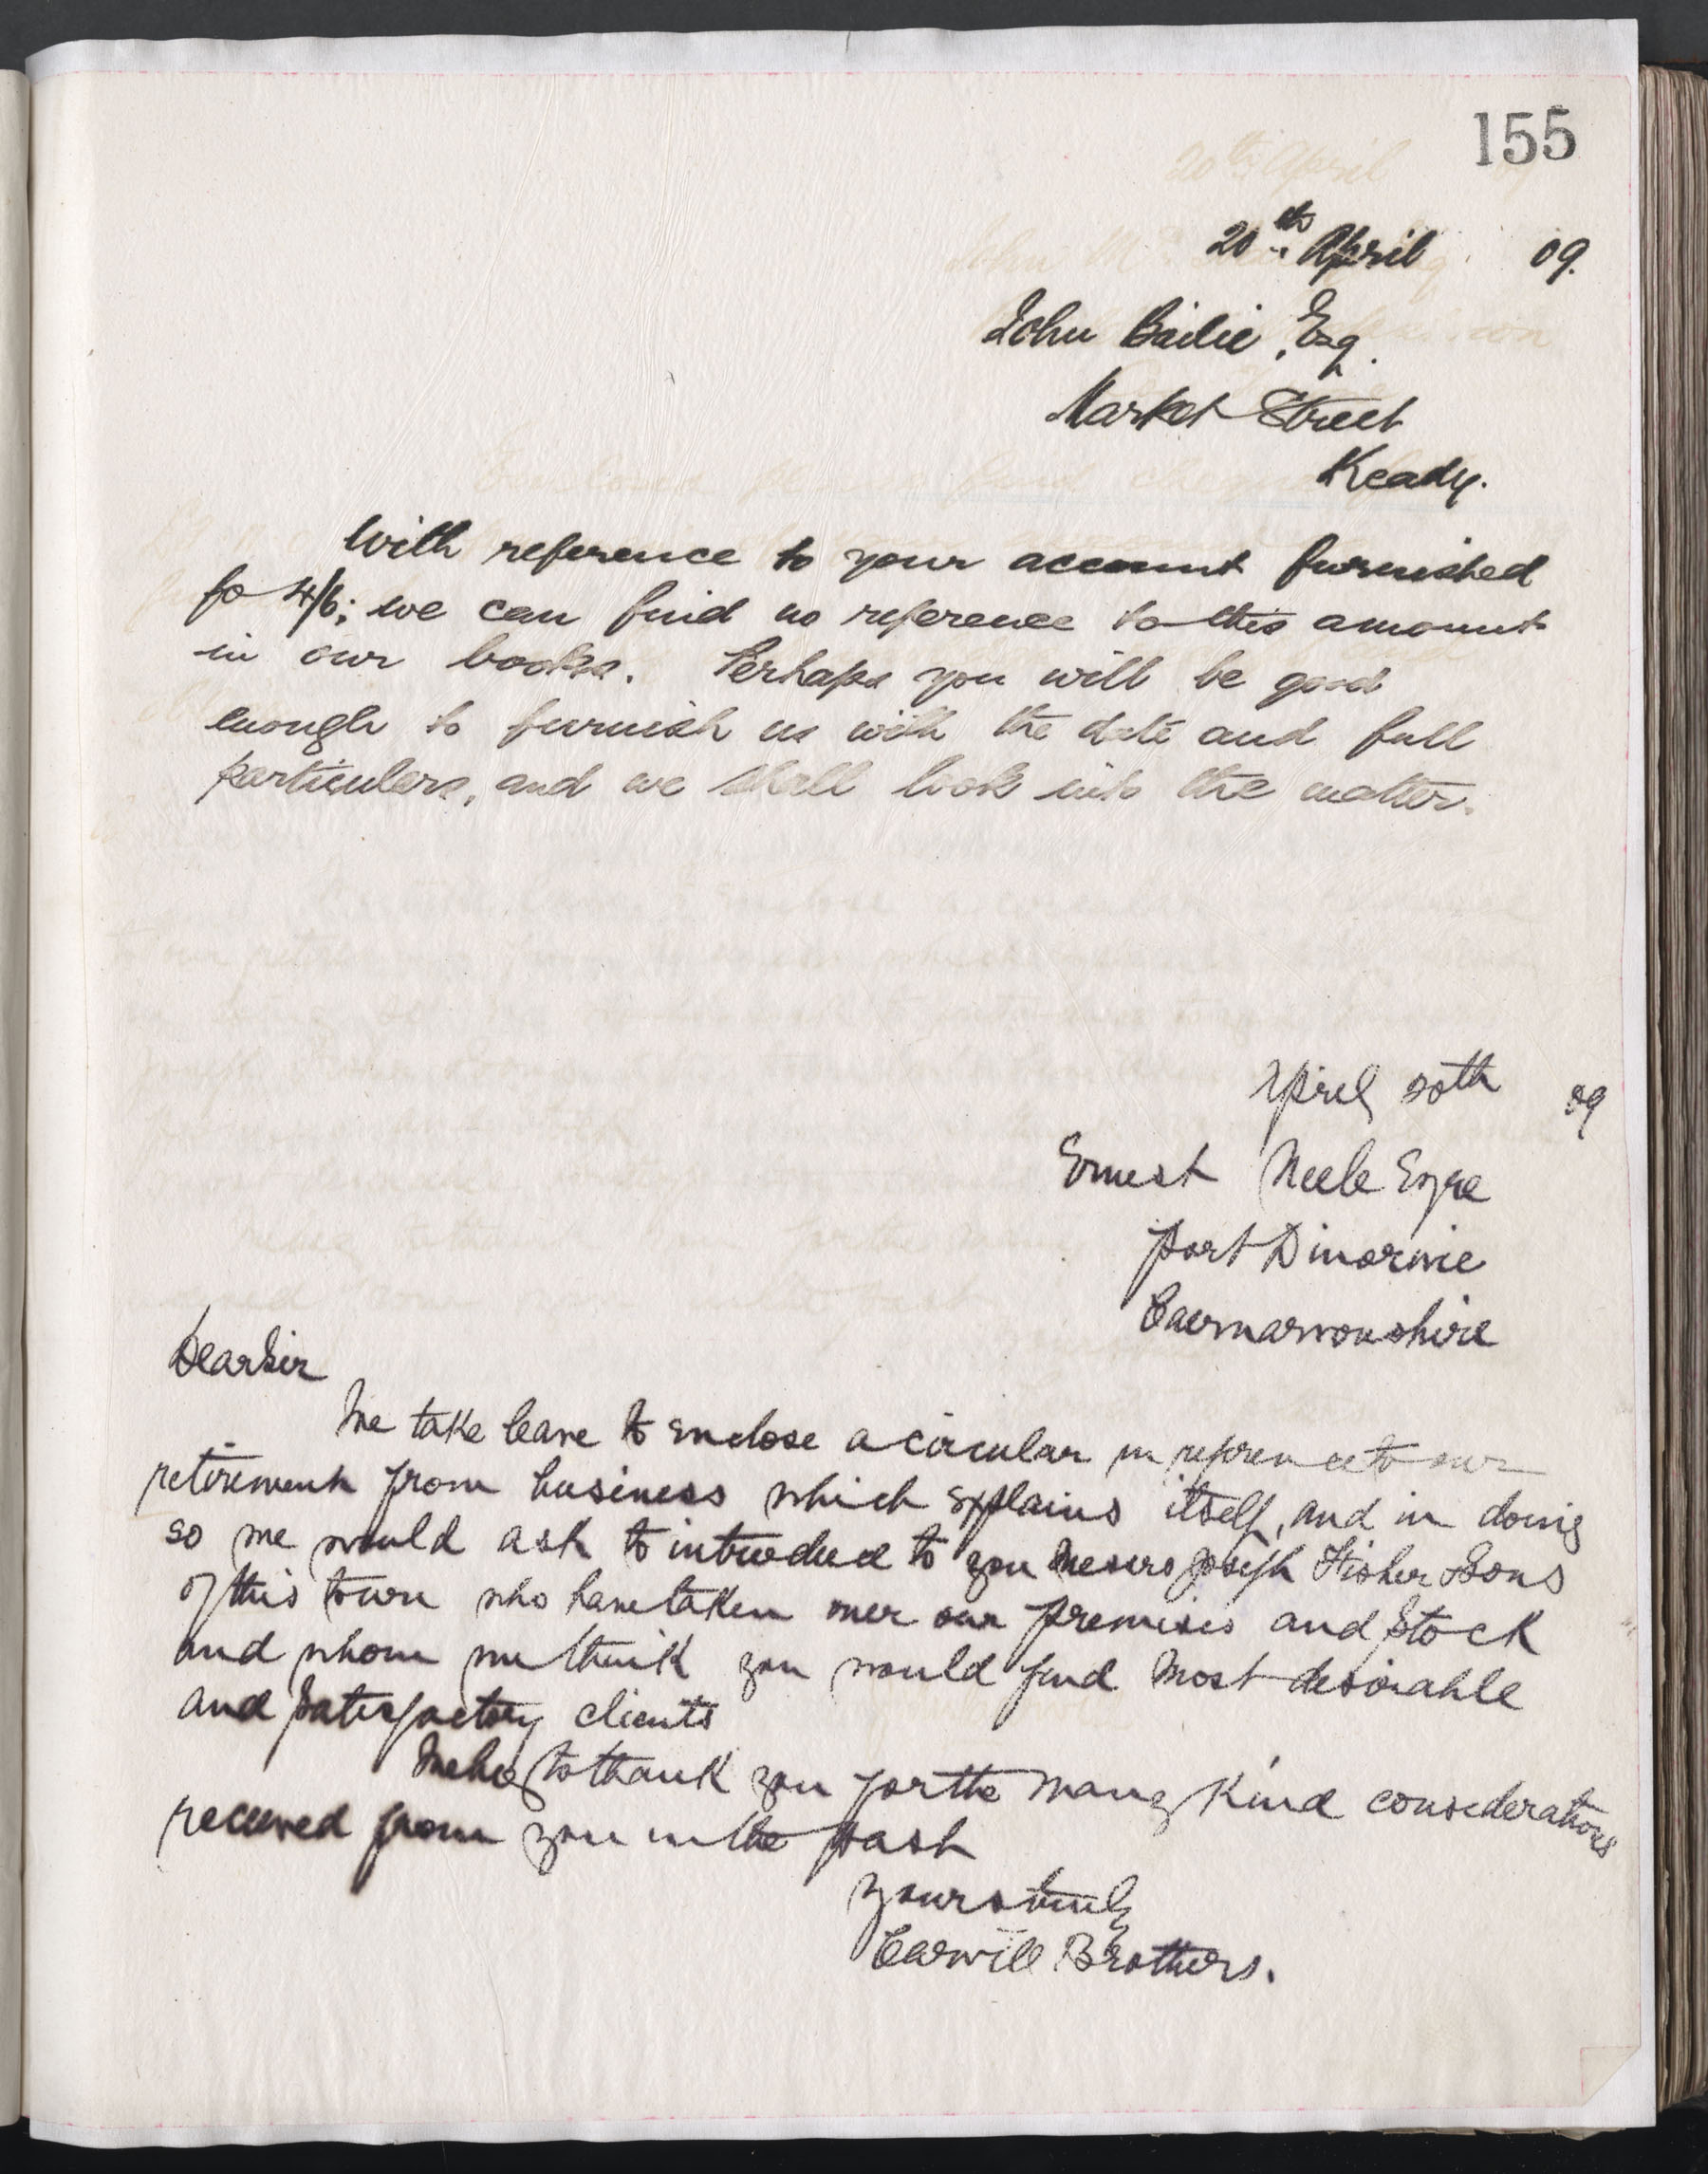 155
20th April 09.
John Bailie, Esq.
Market Street
Keady.
With reference to your account furnished
fo 4/6; we can find no reference to this amount
in our books. Perhaps you will be good
enough to furnish us with the date and full
particulars, and we shall look into the matter.
April 20th 09
Ernest Neele Esqre
Port Dinorwic
Caernarvonshire
Dear Sir
We take leave to enclose a circular in reference to our
retirement from business which explains itself, and in doing
so we would ask to introduce to you Messrs Joseph Fisher & Sons
of this town who have taken over our premises and stock
and whom we think you would find most desirable
and satisfactory clients
We beg to thank you for the many kind considerations
received from you in the past
Yours truly
Carvill Brothers.